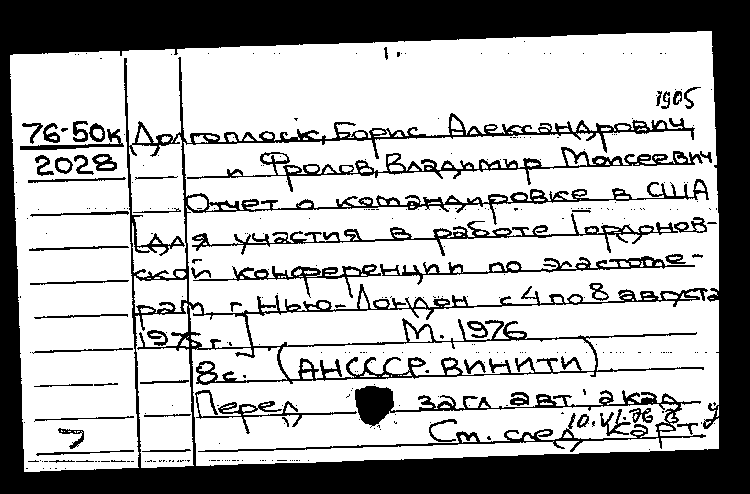 1905
76-50к Долгоплоск, Борис Александрович,
2028 и Фролов, Владимир Моисеевич.
Отчет о командировке в США
[для участия в работе Гордонов-
ской конференции по эластоме-
рам, г. Нью-Лондон с 4 по 8 августа
1975 г.] М., 1976
8 с. (АН СССР. ВИНИТИ)
Перед загл. авт.: акад
10.VI-76
См. след карт